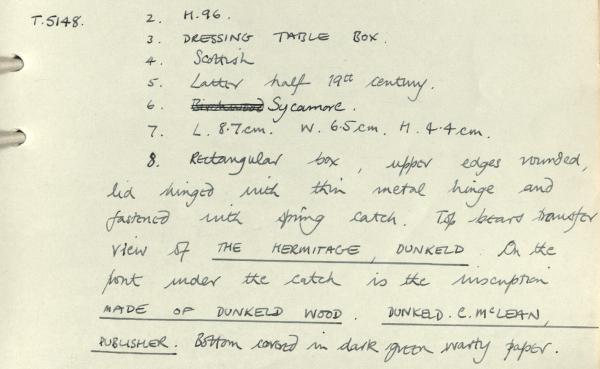 T.5148. 2. H.96.
3. DRESSING TABLE BOX.
4. Scottish
5. Latter half 19th century.
6. Birchwood Sycamore.
7. L. 8.7cm. W. 6.5cm. H. 4.4cm.
8. Rectangular box, upper edges rounded,
lid hinged with thin metal hinge and
fastened with spring catch. Top bears transfer
view of THE HERMITAGE, DUNKELD. On the
front under the catch is the inscription
MADE OF DUNKELD WOOD. DUNKELD. C. McLEAN,
PUBLISHER. Bottom covered in dark green warty paper.